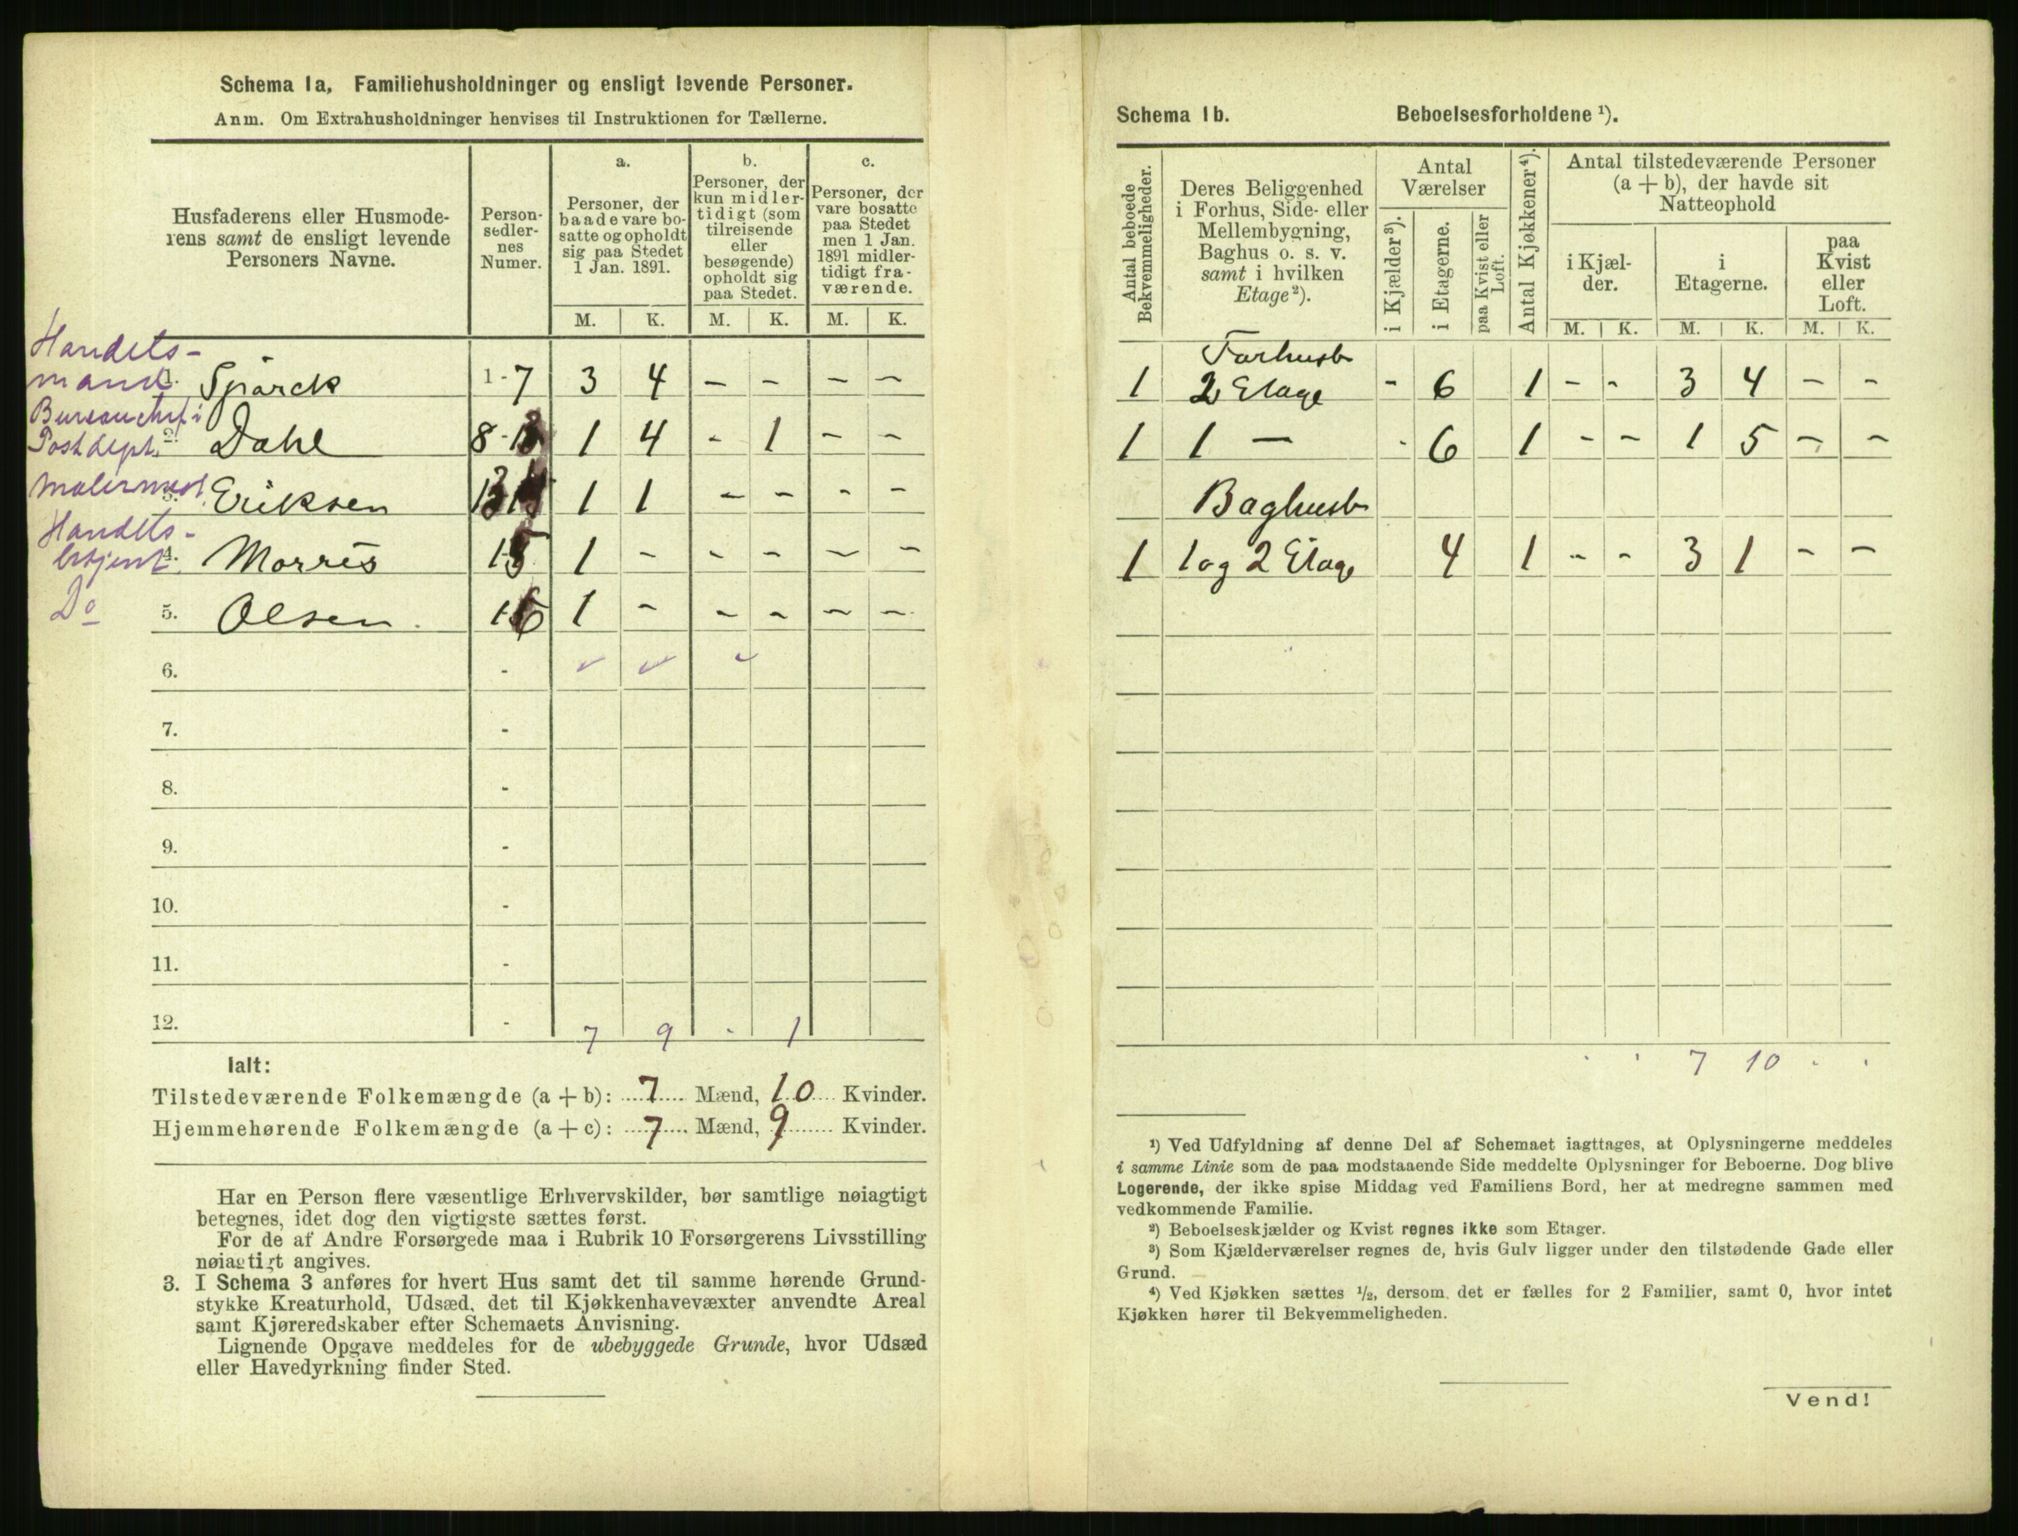 Schema 1a, Familiehusholdninger og ensligt levende Personer.
Anm. Om Extrahusholdninger henvises til Instruktionen for Tællerne.
Husfaderens eller Husmode-
rens samt de ensligt levende
Personers Navne.
Person-
sedler-
nes
Numer.
a.
Personer, der
baade vare bo-
satte og opholdt
sig paa Stedet
1 Jan. 1891.
b.
Personer, der
kun midler-
tidigt (som
tilreisende
eller
besøgende)
opholdt sig
paa Stedet.
c.
Personer, der
vare bosatte
paa Stedet
men 1 Jan.
1891 midler-
tidigt fra-
værende.
M. K. M. K. M. K.
Handels-
mand 1. Spärck 1-7 3 4 – – – –
Bureauchef i
Postdept. 2. Dahl 8- 1 4 - 1 – –
Malermest. 3. Eriksen 1 1 – – - –
Handels-
betjent 4. Morris 15 1 – – – – –
Do 5. Olsen. 16 1 – – – – –
6. -
7. -
8. -
9. -
10. -
11. -
12. - 7 9 - 1
Ialt:
Tilstedeværende Folkemængde (a + b): 7 Mænd, 10 Kvinder.
Hjemmehørende Folkemængde (a + c): 7 Mænd, 9 Kvinder.
Har en Person flere væsentlige Erhvervskilder, bør samtlige nøiagtigt
betegnes, idet dog den vigtigste sættes først.
For de af Andre Forsørgede maa i Rubrik 10 Forsørgerens Livsstilling
nøiagtigt angives.
3. I Schema 3 anføres for hvert Hus samt det til samme hørende Grund-
stykke Kreaturhold, Udsæd, det til Kjøkkenhavevæxter anvendte Areal
samt Kjøreredskaber efter Schemaets Anvisning.
Lignende Opgave meddeles for de ubebyggede Grunde, hvor Udsæd
eller Havedyrkning finder Sted.
Schema 1b. Beboelsesforholdene ¹).
Antal beboede
Bekvemmeligheder.
Deres Beliggenhed
i Forhus, Side- eller
Mellembygning,
Baghus o. s. v.
samt i hvilken
Etage²).
Antal
Værelser
i Kjælder³).
i Etagerne.
paa Kvist eller
Loft.
Antal Kjøkkener⁴).
Antal tilstedeværende Personer
(a + b), der havde sit
Natteophold
i Kjæl-
der.
i
Etagerne.
paa
Kvist
eller
Loft.
M. K. M. K. M. K.
Forhusb
1 2 Etage - 6 1 – - 3 4 – –
1 1 — - 6 1 - – 1 5 – –
Baghusb
1 1 og 2 Etage 4 1 – – 3 1 – –
· · 7 10 · ·
¹) Ved Udfyldning af denne Del af Schemaet iagttages, at Oplysningerne meddeles
i samme Linie som de paa modstaaende Side meddelte Oplysninger for Beboerne. Dog blive
Logerende, der ikke spise Middag ved Familiens Bord, her at medregne sammen med
vedkommende Familie.
²) Beboelseskjælder og Kvist regnes ikke som Etager.
³) Som Kjælderværelser regnes de, hvis Gulv ligger under den tilstødende Gade eller
Grund.
⁴) Ved Kjøkken sættes ½, dersom det er fælles for 2 Familier, samt 0, hvor intet
Kjøkken hører til Bekvemmeligheden.
Vend!